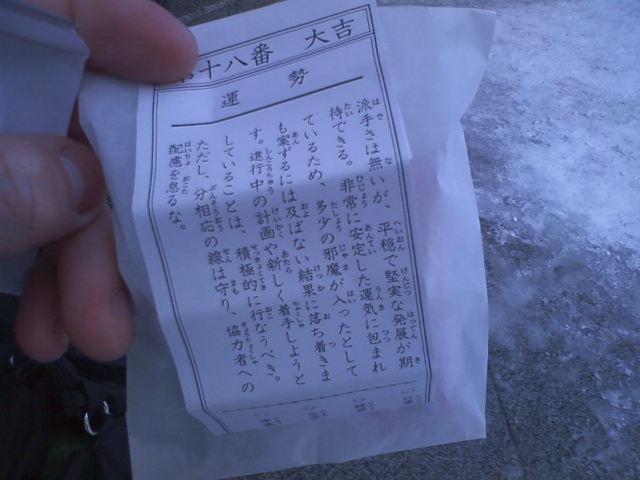 十八番 大吉
運勢
派手さは無いが、平穏で堅実な発展が期
待できる。非常に安定した運気に包まれ
ているため、多少の邪魔が入ったとして
も案ずるには及ばない結果に落ち着きま
す。進行中の計画や新しく着手しようと
していることは、積極的に行なうべき。
ただし、分相応の線は守り、協力者への
配慮を怠るな。